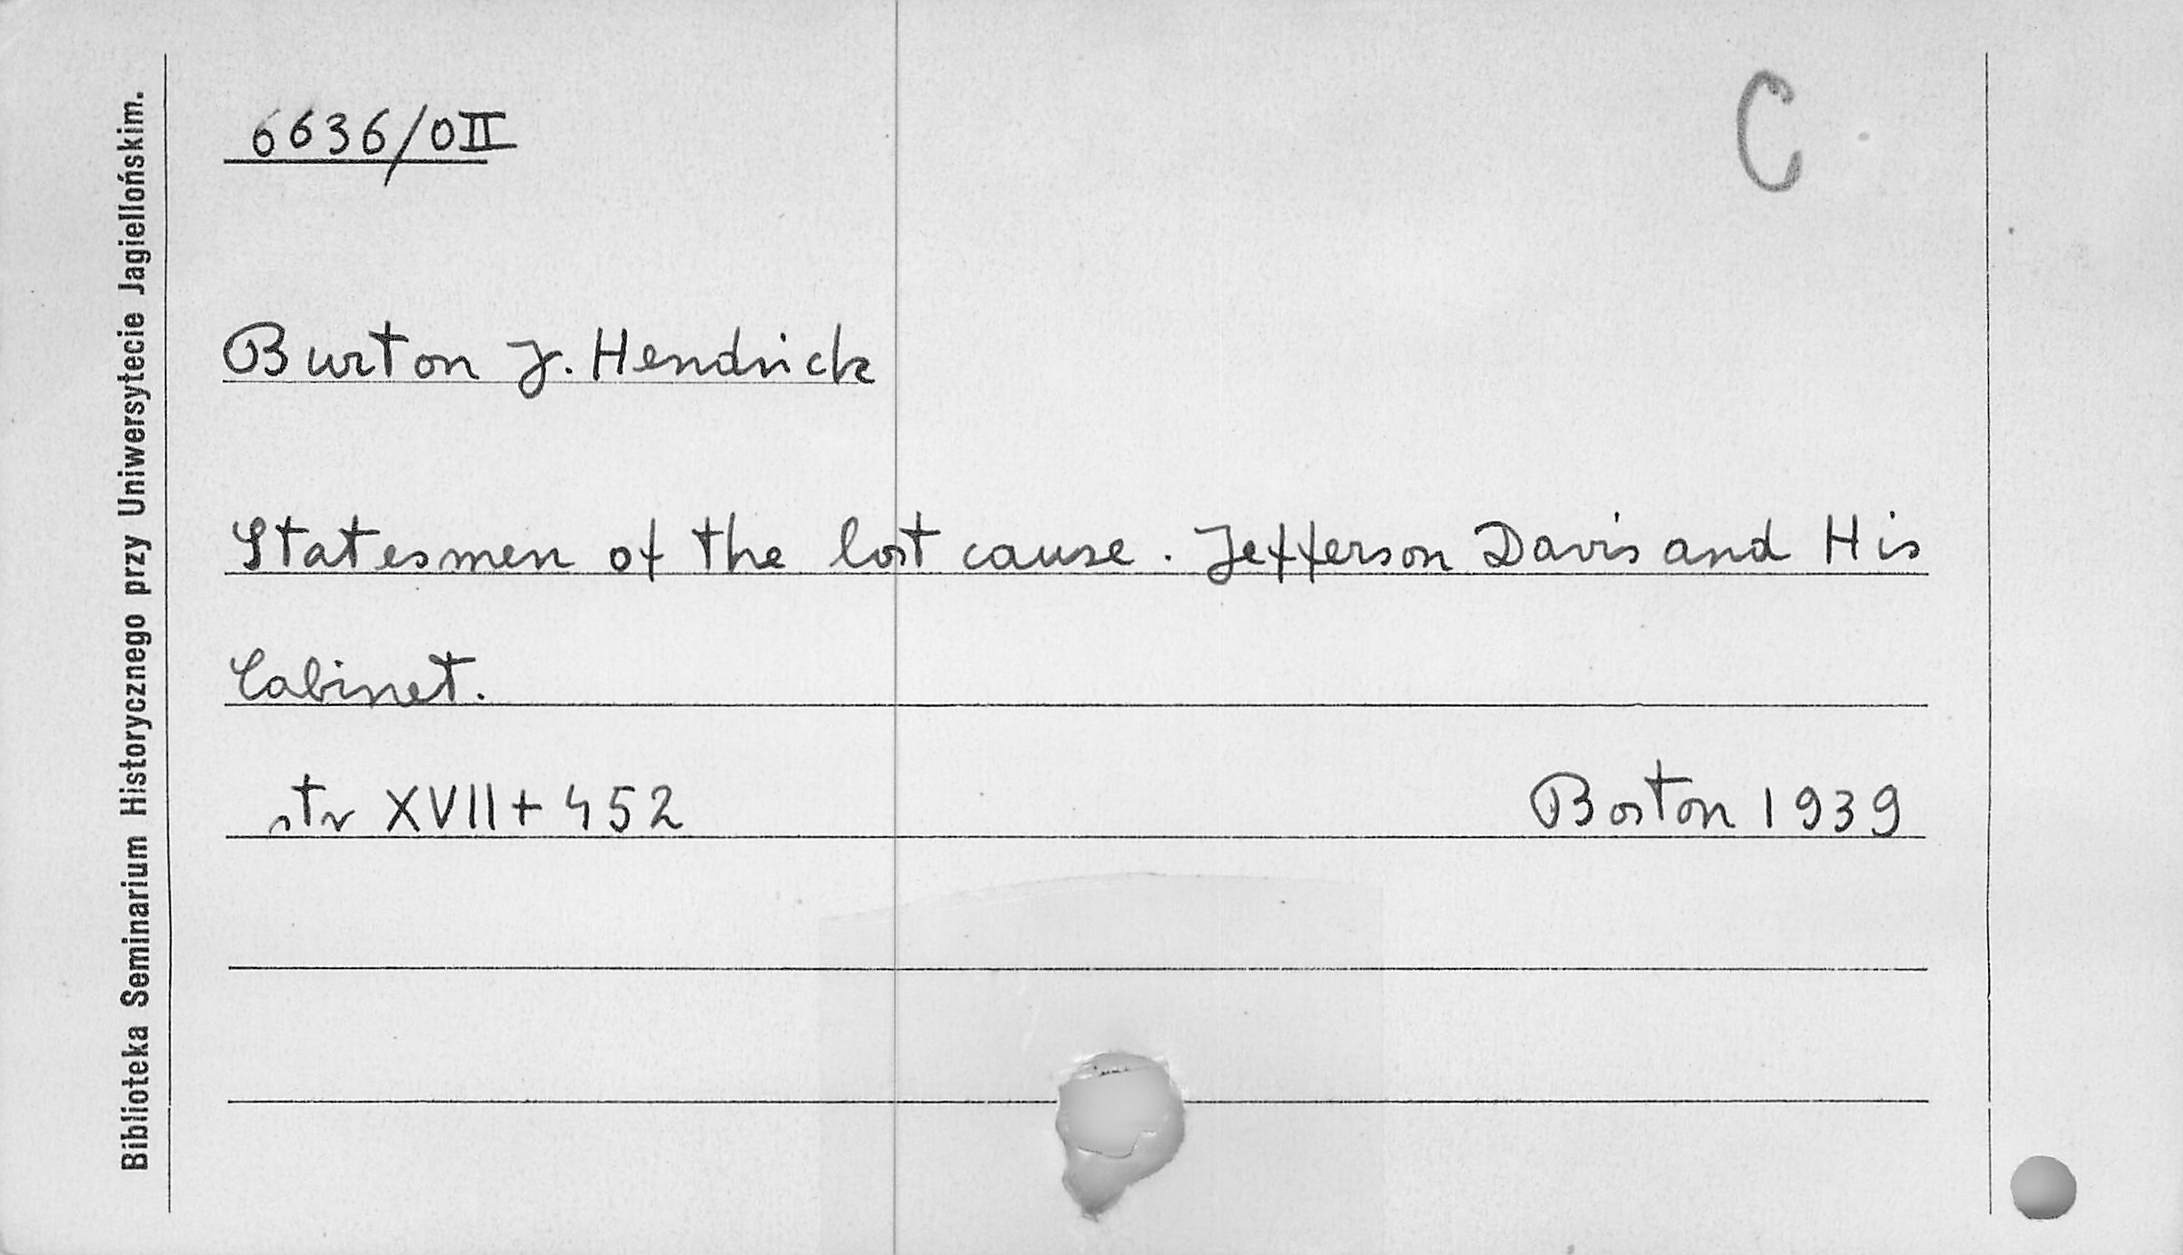 6636/0II
C
Burton J. Hendrick
Statesmen of the lost cause. Jefferson Davis and His
Cabinet.
str XVII + 452 Boston 1939
Biblioteka Seminarium Historycznego przy Uniwersytecie Jagiellońskim.